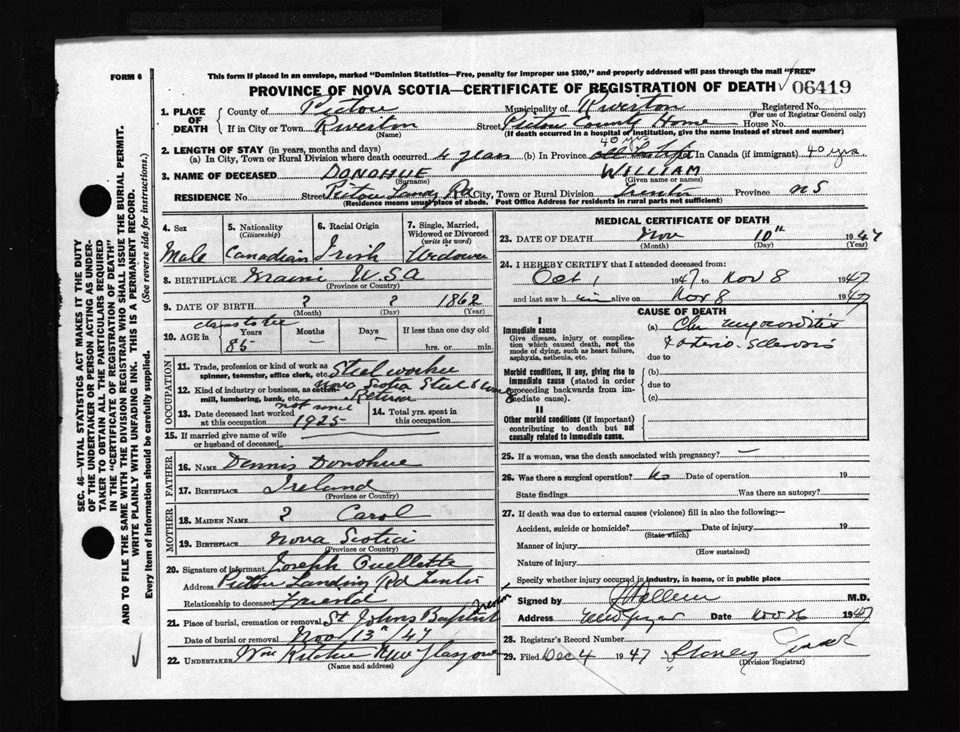 FORM 6
This form if placed in an envelope, marked "Dominion Statistics—Free, penalty for improper use $300," and properly addressed will pass through the mail "FREE"
PROVINCE OF NOVA SCOTIA—CERTIFICATE OF REGISTRATION OF DEATH 06419
1. PLACE OF DEATH County of Pictou Municipality of Riverton Registered No.
(For use of Registrar General only)
If in City or Town Riverton Street Pictou County Home House No.
(Name) (If death occurred in a hospital of institution, give the name instead of street and number)
2. LENGTH OF STAY (in years, months and days) 40 yrs
(a) In City, Town or Rural Division where death occurred 4 years (b) In Province in Canada (if immigrant) 40 yrs.
3. NAME OF DECEASED DONOHUE WILLIAM
(Surname) (Given name or names)
RESIDENCE No. Street Pictou Landing Rd City, Town or Rural Division Trenton Province NS
(Residence means usual place of abode. Post Office Address for residents in rural parts not sufficient)
4. Sex Male
5. Nationality (Citizenship) Canadian
6. Racial Origin Irish
7. Single, Married, Widowed or Divorced (write the word) Widower
8. BIRTHPLACE Maine U.S.A
(Province or Country)
9. DATE OF BIRTH ? ? 1862
(Month) (Day) (Year)
10. AGE in Years Months Days If less than one day old
85 — — hrs. or min.
OCCUPATION
11. Trade, profession or kind of work as spinner, teamster, office clerk, etc. Steel worker
12. Kind of industry or business, as cotton mill, lumbering, bank, etc. Nova Scotia Steel
13. Date deceased last worked at this occupation 1925
14. Total yrs. spent in this occupation
15. If married give name of wife or husband of deceased
FATHER
16. NAME Dennis Donohue
17. BIRTHPLACE Ireland
(Province or Country)
MOTHER
18. MAIDEN NAME ? Carol
19. BIRTHPLACE Nova Scotia
(Province or Country)
20. Signature of informant Joseph Ouellette
Address Pictou Landing Rd Trenton
Relationship to deceased Friend
21. Place of burial, cremation or removal St Johns Baptist
Date of burial or removal Nov 13th/47
22. UNDERTAKER Wm Ritchie New Glasgow
(Name and address)
MEDICAL CERTIFICATE OF DEATH
23. DATE OF DEATH Nov 10th 1947
(Month) (Day) (Year)
24. I HEREBY CERTIFY that I attended deceased from:
Oct 1 1947 to Nov 8 1947
and last saw him alive on Nov 8 1947
CAUSE OF DEATH
I
Immediate cause (a) Chr myocarditis
Give disease, injury or complication which caused death, not the mode of dying, such as heart failure, asphyxia, asthenia, etc.
& arterio-sclerosis
due to
Morbid conditions, if any, giving rise to immediate cause (stated in order proceeding backwards from immediate cause). (b)
due to
(c)
II
Other morbid conditions (if important) contributing to death but not causally related to immediate cause.
25. If a woman, was the death associated with pregnancy? —
26. Was there a surgical operation? No Date of operation 19
State findings Was there an autopsy?
27. If death was due to external causes (violence) fill in also the following:—
Accident, suicide or homicide? Date of injury 19
(State which)
Manner of injury
(How sustained)
Nature of injury
Specify whether injury occurred in industry, in home, or in public place
Signed by M.D.
Address Date Nov 26 1947
28. Registrar's Record Number
29. Filed Dec 4 1947
(Division Registrar)
SEC. 46—VITAL STATISTICS ACT MAKES IT THE DUTY
OF THE UNDERTAKER OR PERSON ACTING AS UNDER-
TAKER TO OBTAIN ALL THE PARTICULARS REQUIRED
IN THE "CERTIFICATE OF REGISTRATION OF DEATH"
AND TO FILE THE SAME WITH THE DIVISION REGISTRAR WHO SHALL ISSUE THE BURIAL PERMIT.
WRITE PLAINLY WITH UNFADING INK. THIS IS A PERMANENT RECORD.
Every item of information should be carefully supplied. (See reverse side for instructions.)